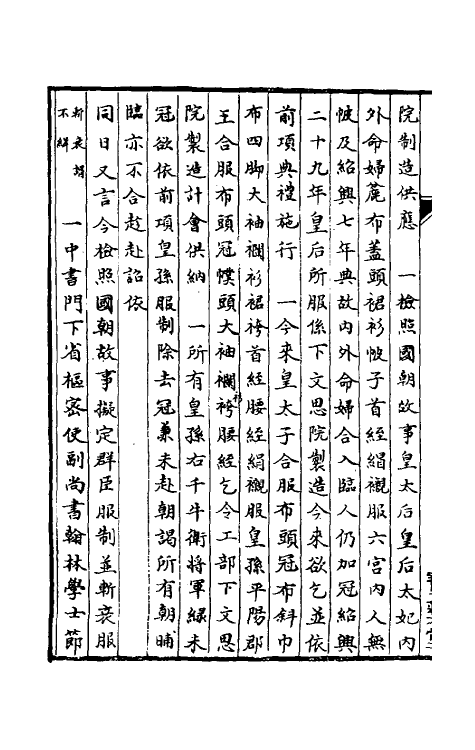 院制造供應　一檢照國朝故事皇太后皇后太妃内
外命婦麄布蓋頭裙衫帔子首絰絹襯服六宫内人無
帔及紹興七年典故内外命婦合入臨人仍加冠紹興
二十九年皇后所服係下文思院製造今來欲乞並依
前項典禮施行　一今來皇太子合服布頭冠布斜巾
布四脚大袖襴衫裙袴首絰腰絰絹襯服皇孫平陽郡
王合服布頭冠幞頭大袖襴衫袴腰絰乞令工部下文思
院製造計會供納　一所有皇孫右千牛衛將軍緑未
冠欲依前項皇孫服制除去冠兼未赴朝謁所有朝晡
臨亦不合趁赴詔依
同日又言今檢照國朝故事擬定群臣服制並斬衰服
斬衰謂
不緝
一中書門下省樞密使副尚書翰林學士節